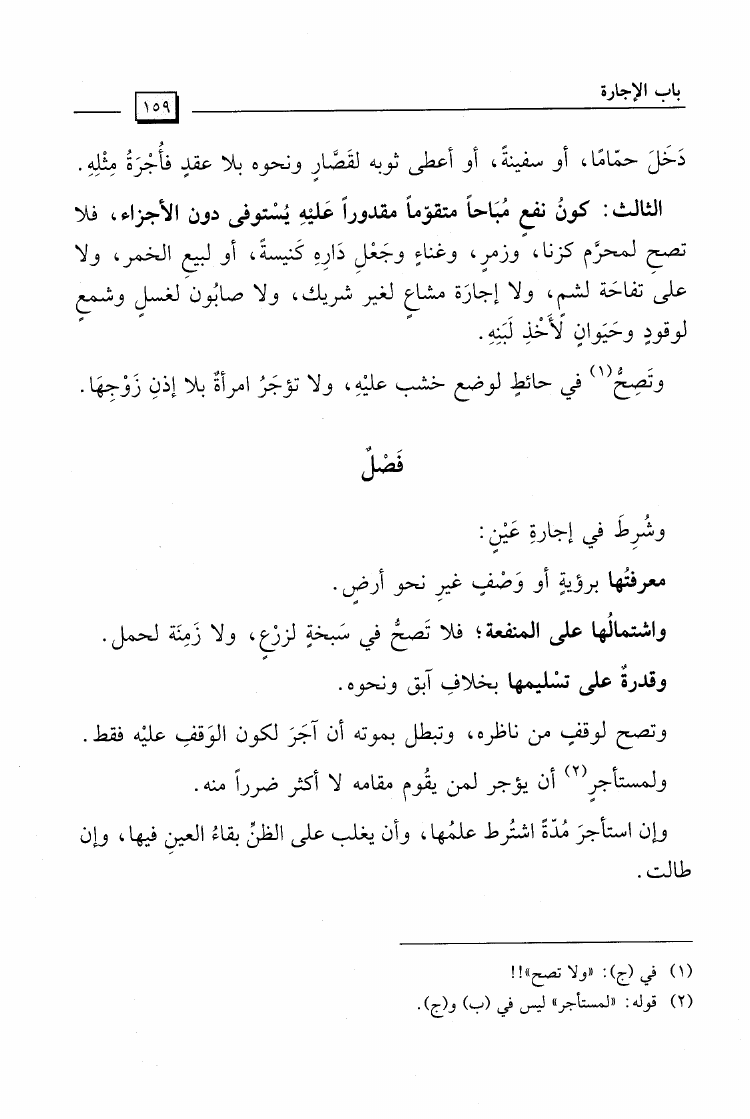 باب الإجارة
١٥٩
دَخَلَ حمّامًا، أو سفينةً، أو أعطى ثوبه لقَصَّارٍ ونحوه بلا عقدٍ فأُجْرَةُ مِثْلِهِ.
الثالث: كونُ نفعٍ مُبَاحاً متقوّماً مقدوراً عَليْهِ يُسْتوفى دون الأجزاء، فلا
تصح لمحرَّم كزنا، وزمرٍ، وغناءٍ وجَعْلِ دَارِهِ كَنيسةً، أو لبيعِ الخمر، ولا
على تفاحَة لشمٍ، ولا إجارَة مشاعٍ لغير شريك، ولا صابُون لغسلٍ وشمعٍ
لوقودٍ وحيَوانٍ لأَخْذِ لَبَنِهِ.
وتَصِحُّ(١) في حائطٍ لوضع خشب عليْهِ، ولا تؤجَرُ امرأةٌ بلا إذنِ زَوْجِهَا.
فَصْلٌ
وشُرِطَ في إجارةِ عَيْنٍ:
معرفتُها برؤيةٍ أو وَصْفٍ غيرِ نحو أرضٍ.
واشتمالُها على المنفعة؛ فلا تَصحُّ في سَبخةٍ لزرْعٍ، ولا زَمِنَة لحمل.
وقدرةٌ على تسْليمها بخلافِ آبق ونحوه.
وتصح لوقفٍ من ناظره، وتبطل بموته أن آجَرَ لكون الوَقفِ عليْه فقط.
ولمستأجرٍ(٢) أن يؤجر لمن يقُوم مقامه لا أكثر ضرراً منه.
وإن استأجرَ مُدّةً اشتُرط علمُها، وأن يغلب على الظنِّ بقاءُ العينِ فيها، وإن
طالت.
(١) في (ج): «ولا تصح»!!
(٢) قوله: «لمستأجر» ليس في (ب) و(ج).